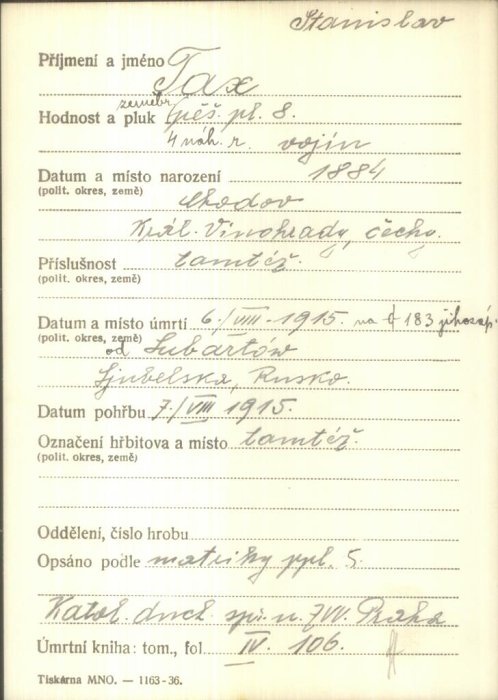 Stanislav
Příjmení a jméno Tax
zeměbr.
Hodnost a pluk pěš. pl. 8.
4 náh. r. vojín
Datum a místo narození 1884
(polit. okres, země) Chodov
Král. Vinohrady, Čechy.
Příslušnost tamtéž.
(polit. okres, země)
Datum a místo úmrtí 6./VIII.-1915. na 183 jihozáp.
(polit. okres, země) od Lubartów
Ljubelska, Rusko.
Datum pohřbu 7./VIII 1915.
Označení hřbitova a místo tamtéž.
(polit. okres, země)
Oddělení, číslo hrobu
Opsáno podle matriky ppl. 5
Katol. duch. spr. u ZVV. Praha
Úmrtní kniha: tom., fol. IV. 106.
Tiskárna MNO. — 1163-36.